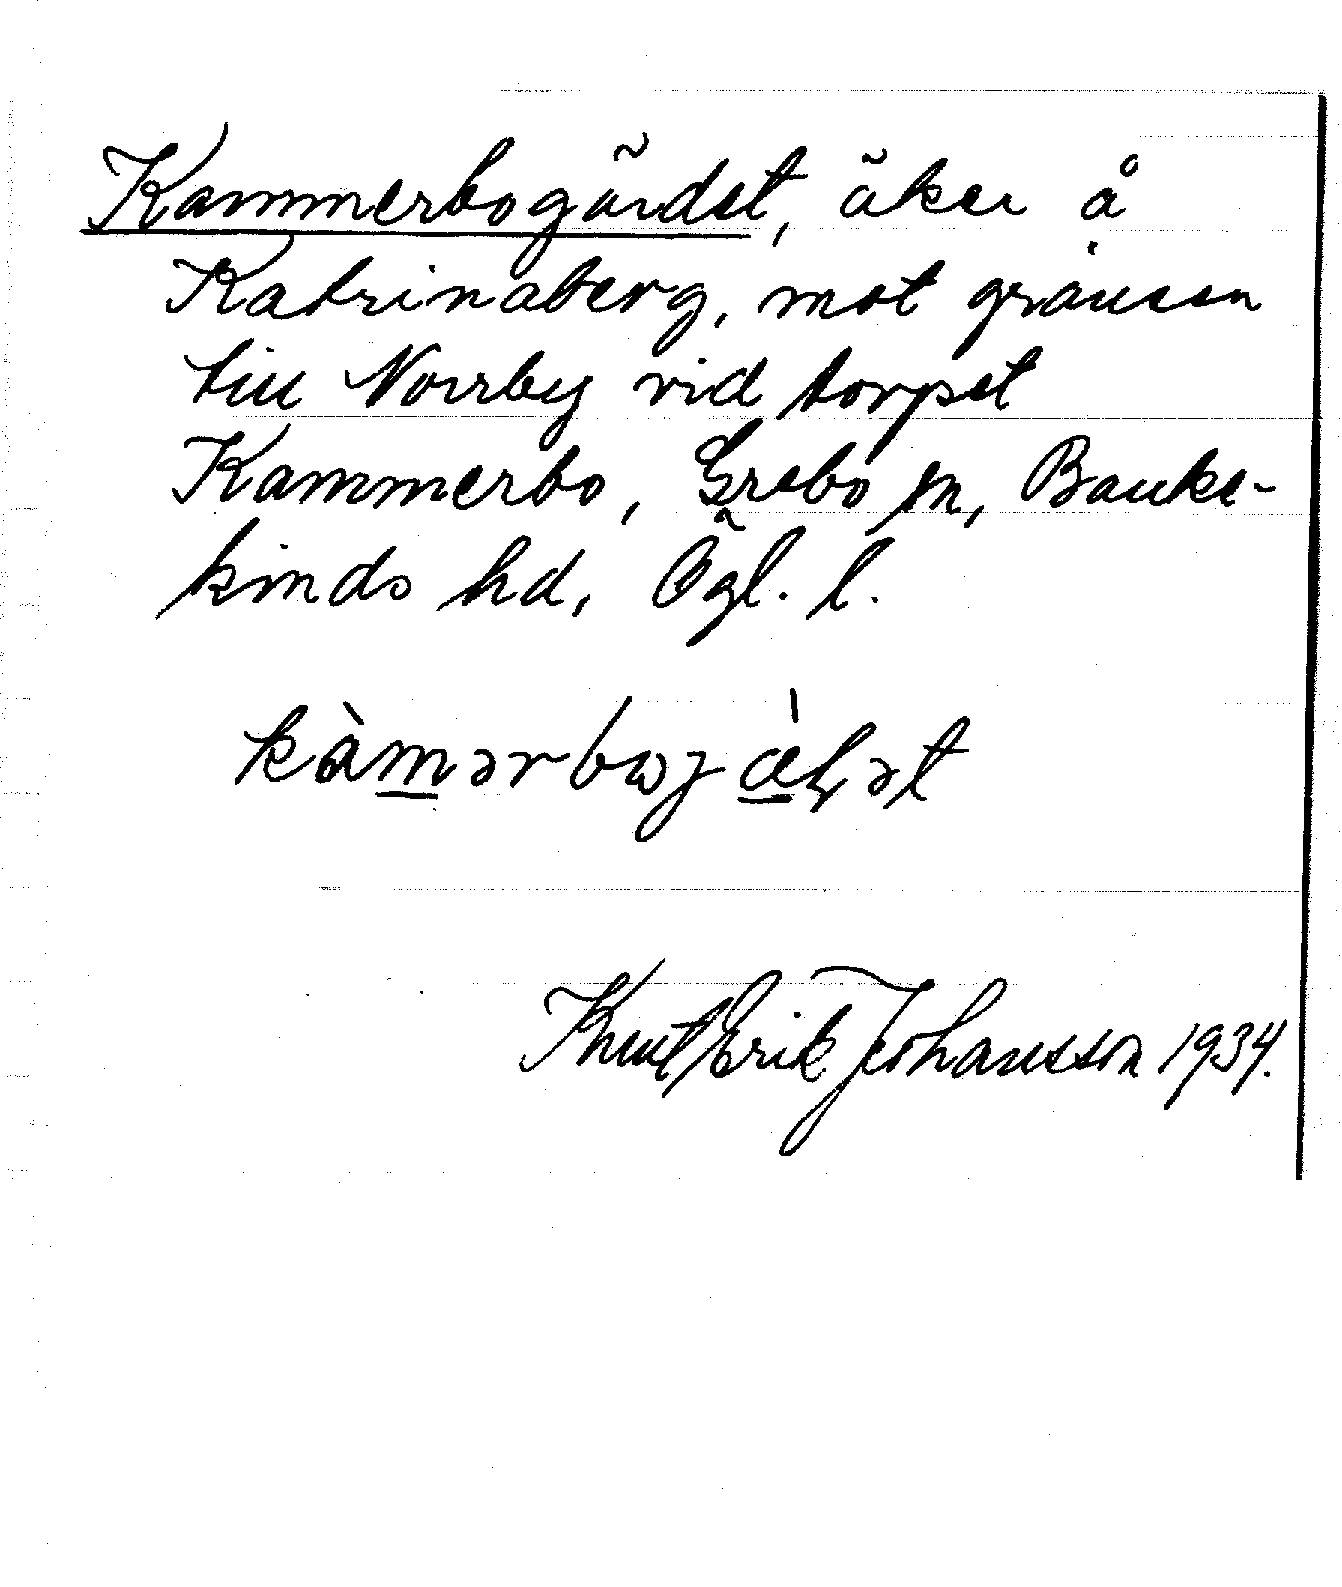 Kammerbogärdet, åker å
Katrinaberg, mot gränsen
till Norrby vid torpet
Kammerbo, Grebo sn, Banke-
kinds hd, Ögl. l.
Knut Erik Johansson 1934.